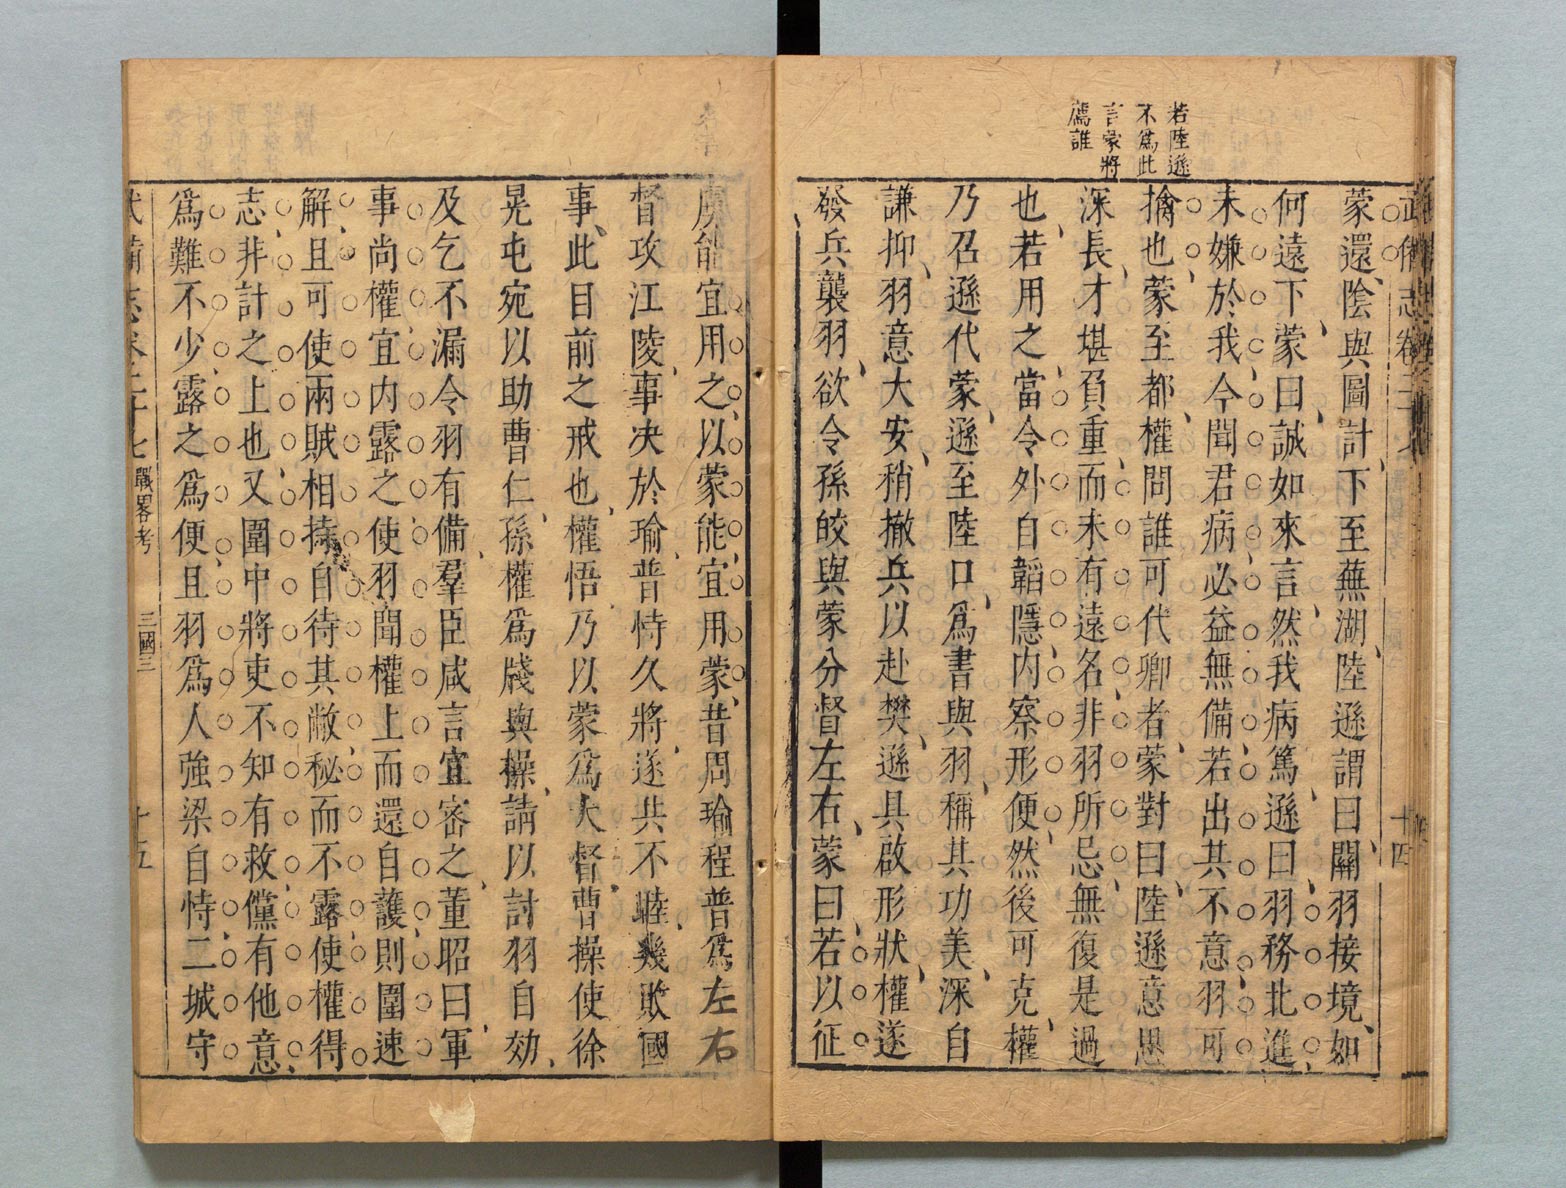 若陸遜
不爲此
言蒙將
鷹誰
蒙還、陰與圖計、下至蕪湖、陸遜謂曰、關羽接境、如
何遠下、蒙曰、誠如來言、然我病篤、遜曰、羽務北進、
未嫌於我、今聞君病、必益無備、若出其不意、羽可
擒也、蒙至都、權問誰可代卿者、蒙對曰、陸遜意思
深長、才堪負重、而未有遠名、非羽所忌、無復是過
也、若用之、當令外自韜隱、内察形便、然後可克、權
乃召遜代蒙、遜至陸口、爲書與羽、稱其功美、深自
謙抑、羽意大安、稍撤兵以赴樊、遜具啟形狀、權遂
發兵襲羽、欲令孫皎與蒙分督左右、蒙曰、若以征
虜能宜用之、以蒙能、宜用蒙、昔周瑜程普爲左右
督攻江陵、事决於瑜、普恃久將、遂共不睦、幾敗國
事、此目前之戒也、權悟、乃以蒙爲大督、曹操使徐
晃屯宛以助曹仁、孫權爲牋與操、請以討羽自効、
及乞不漏令羽有備、羣臣咸言宜審之、董昭曰、軍
事尚權、宜内露之、使羽聞權上而還自護、則圍速
解、且可使兩賊相持、自待其敝、秘而不露、使權得
志、非計之上也、又圍中將吏不知有救、儻有他意、
爲難不少、露之爲便、且羽爲人強梁、自恃二城守
武備志卷二十七 戰畧考 三國三 十五